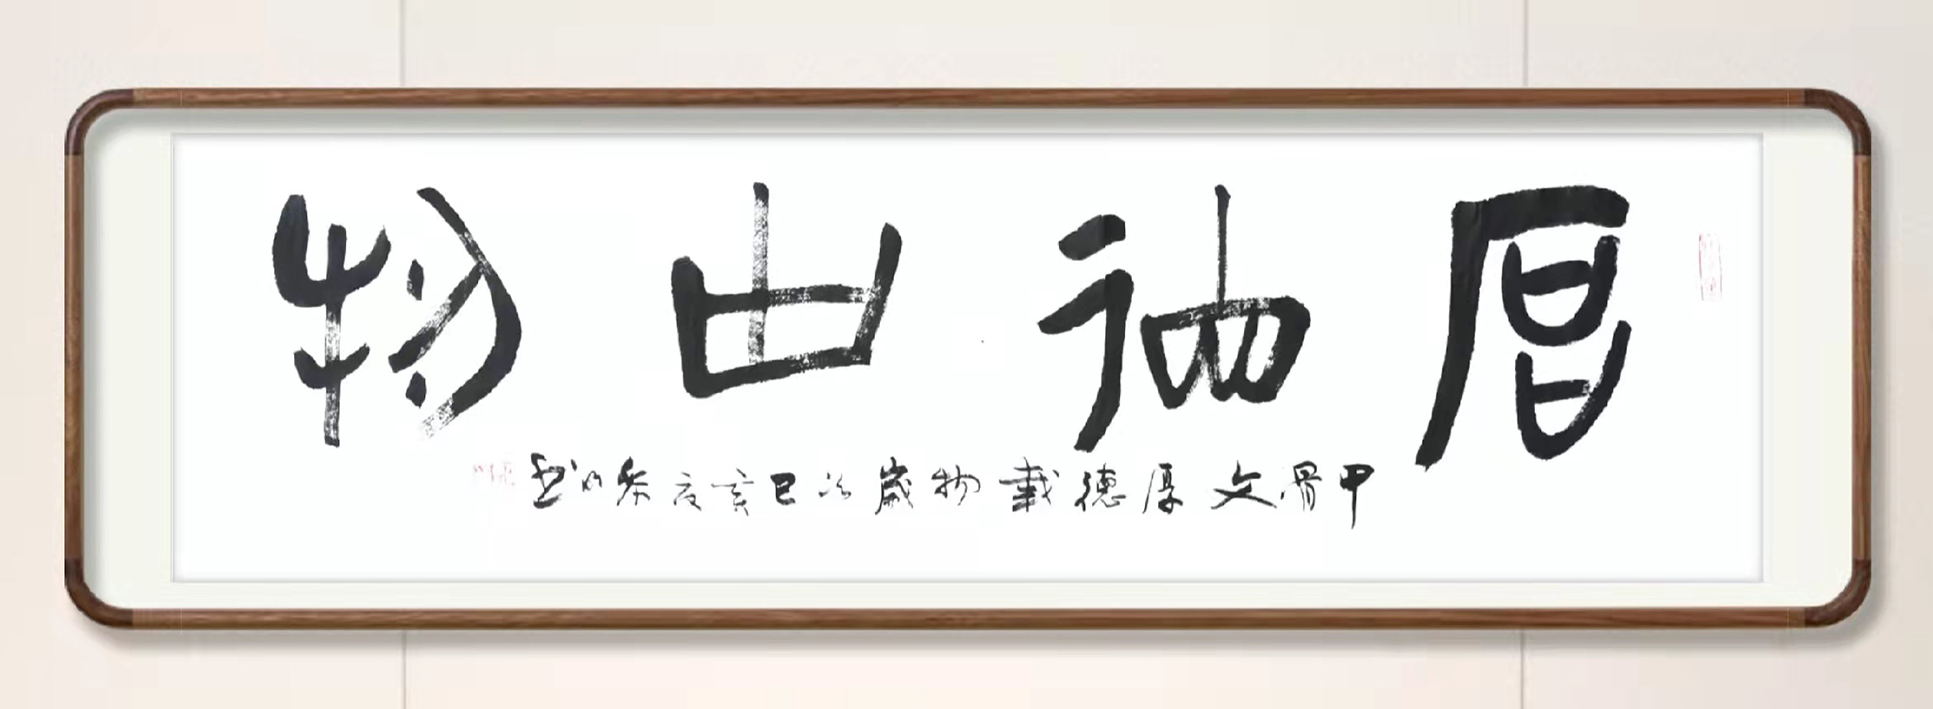 厚德载物
甲骨文厚德載物歲次己亥